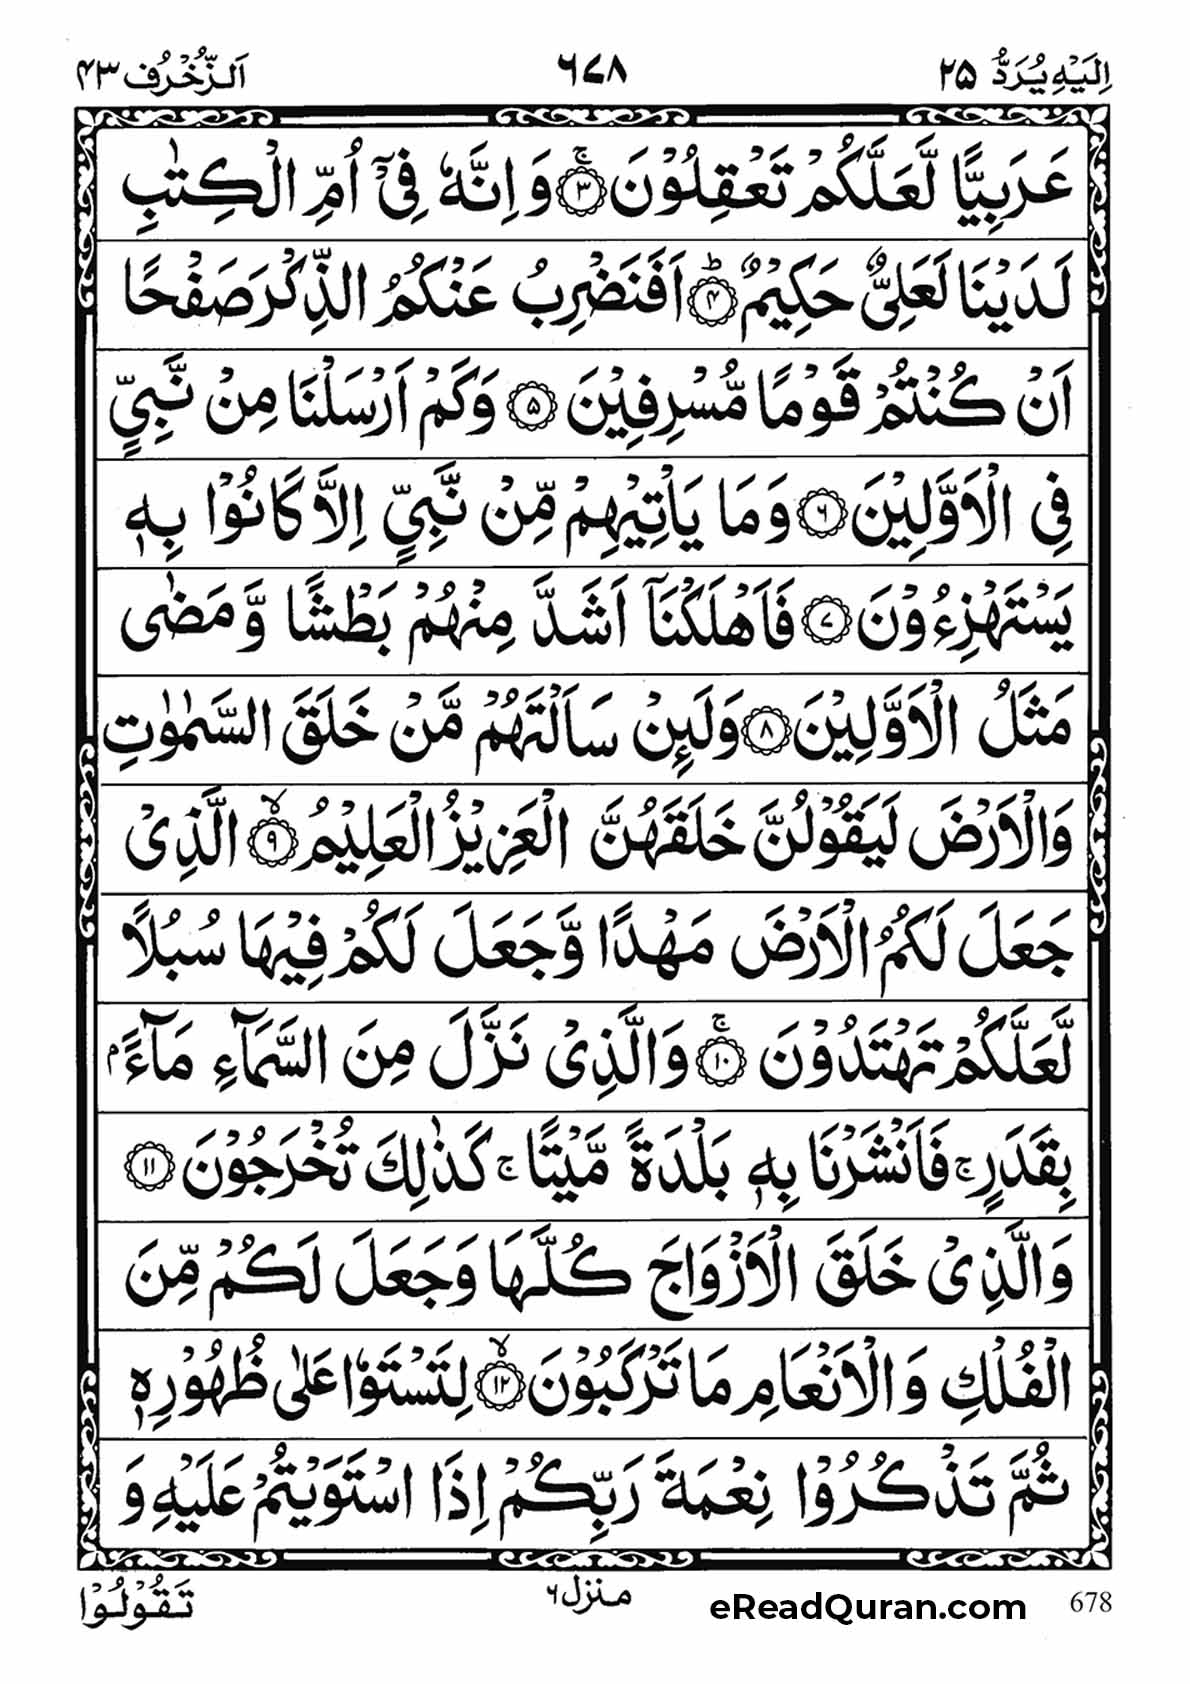 اِلَيْهِ يُرَدُّ ۲۵ ۶۷۸ اَلزُّخْرُف ۴۳
عَرَبِيًّا لَّعَلَّكُمْ تَعْقِلُوْنَ ۚ﴿۳﴾ وَاِنَّهٗ فِيْۤ اُمِّ الْكِتٰبِ
لَدَيْنَا لَعَلِيٌّ حَكِيْمٌ ؕ﴿۴﴾ اَفَنَضْرِبُ عَنْكُمُ الذِّكْرَ صَفْحًا
اَنْ كُنْتُمْ قَوْمًا مُّسْرِفِيْنَ ﴿۵﴾ وَكَمْ اَرْسَلْنَا مِنْ نَّبِيٍّ
فِي الْاَوَّلِيْنَ ﴿۶﴾ وَمَا يَاْتِيْهِمْ مِّنْ نَّبِيٍّ اِلَّا كَانُوْا بِهٖ
يَسْتَهْزِءُوْنَ ﴿۷﴾ فَاَهْلَكْنَاۤ اَشَدَّ مِنْهُمْ بَطْشًا وَّ مَضٰى
مَثَلُ الْاَوَّلِيْنَ ﴿۸﴾ وَلَئِنْ سَاَلْتَهُمْ مَّنْ خَلَقَ السَّمٰوٰتِ
وَالْاَرْضَ لَيَقُوْلُنَّ خَلَقَهُنَّ الْعَزِيْزُ الْعَلِيْمُ ۙ﴿۹﴾ الَّذِيْ
جَعَلَ لَكُمُ الْاَرْضَ مَهْدًا وَّجَعَلَ لَكُمْ فِيْهَا سُبُلًا
لَّعَلَّكُمْ تَهْتَدُوْنَ ۚ﴿۱۰﴾ وَالَّذِيْ نَزَّلَ مِنَ السَّمَآءِ مَآءًۢ
بِقَدَرٍ ۚ فَاَنْشَرْنَا بِهٖ بَلْدَةً مَّيْتًا ۚ كَذٰلِكَ تُخْرَجُوْنَ ﴿۱۱﴾
وَالَّذِيْ خَلَقَ الْاَزْوَاجَ كُلَّهَا وَجَعَلَ لَكُمْ مِّنَ
الْفُلْكِ وَالْاَنْعَامِ مَا تَرْكَبُوْنَ ۙ﴿۱۲﴾ لِتَسْتَوٗا عَلٰى ظُهُوْرِهٖ
ثُمَّ تَذْكُرُوْا نِعْمَةَ رَبِّكُمْ اِذَا اسْتَوَيْتُمْ عَلَيْهِ وَ
تَقُوْلُوْا منزل ۶ eReadQuran.com 678